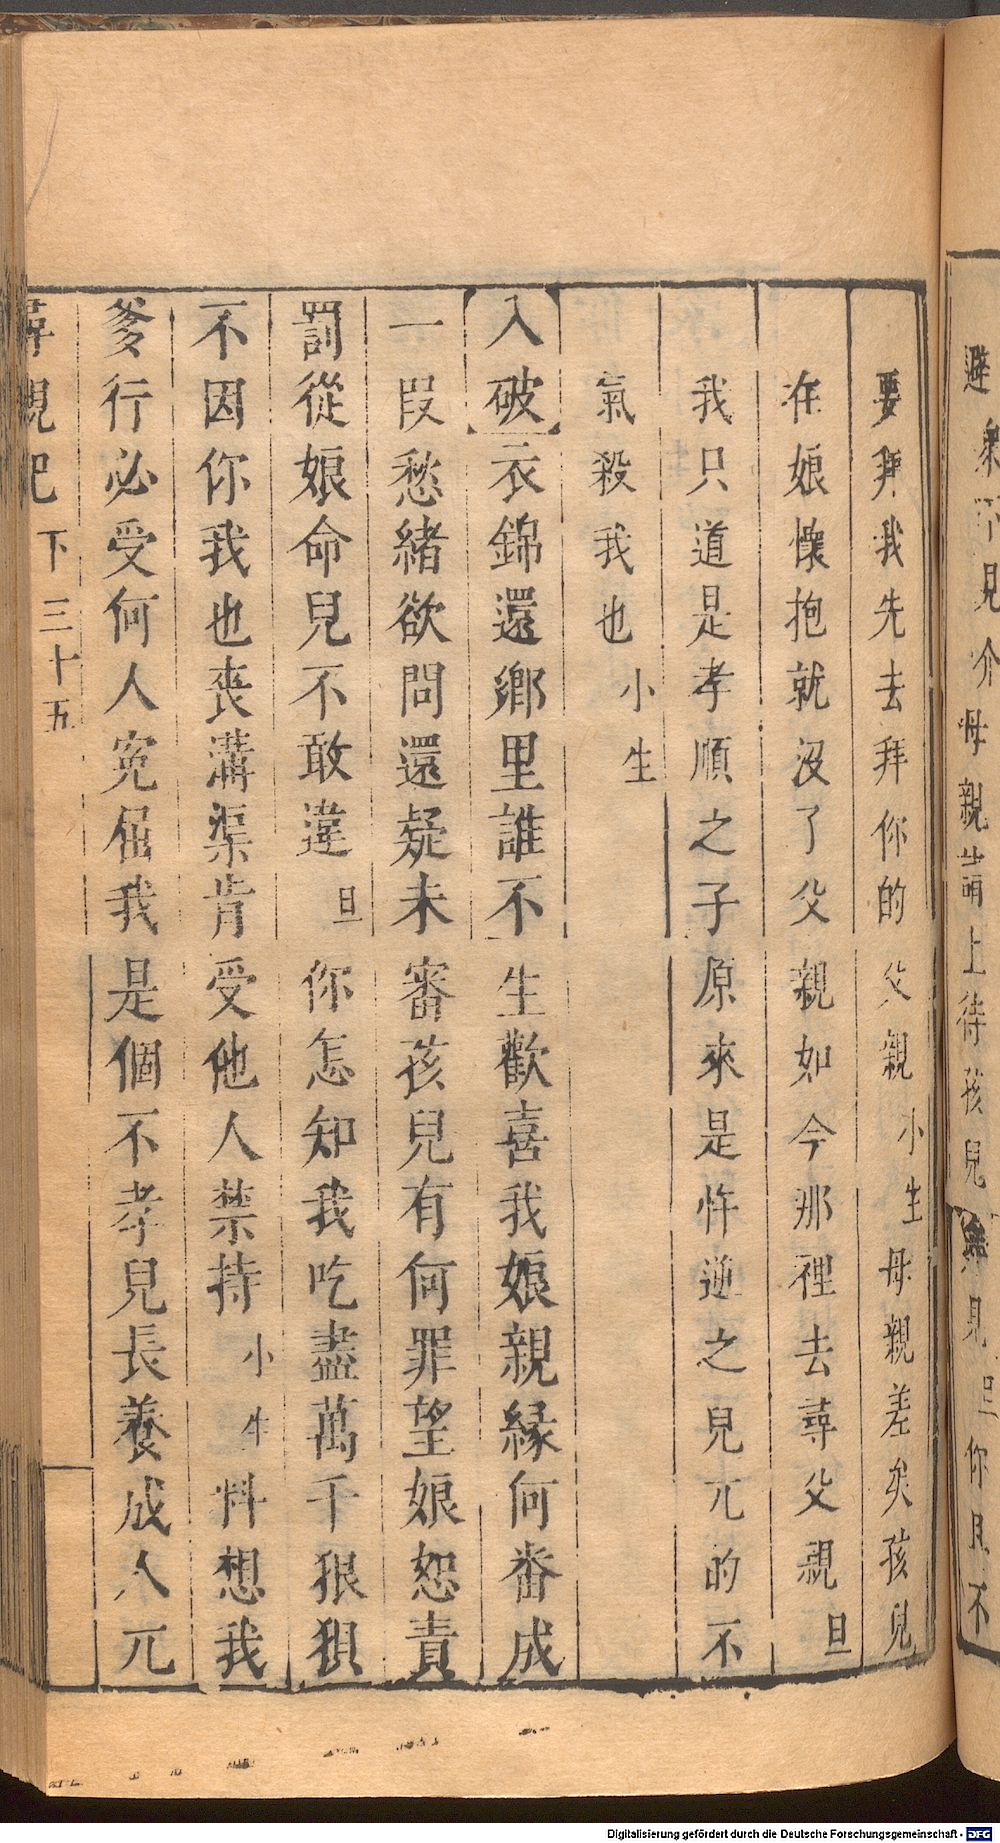 避衆下見介母親請上待孩兒見旦你且不
要拜我先去拜你的父親小生母親差矣孩兒
在娘懷抱就沒了父親如今那裡去尋父親旦
我只道是孝順之子原來是忤逆之兒兀的不
氣殺我也小生
入破衣錦還鄉里誰不生歡喜我娘親緣何畨成
一段愁緒欲問還疑未審孩兒有何罪望娘恕責
罰從娘命兒不敢違旦你怎知我吃盡萬千狠狽
不因你我也喪溝渠肯受他人禁持小生料想我
爹行必受何人寃屈我是個不孝兒長養成人兀
尋親記 下 三十五
Digitalisierung gefördert durch die Deutsche Forschungsgemeinschaft - DFG